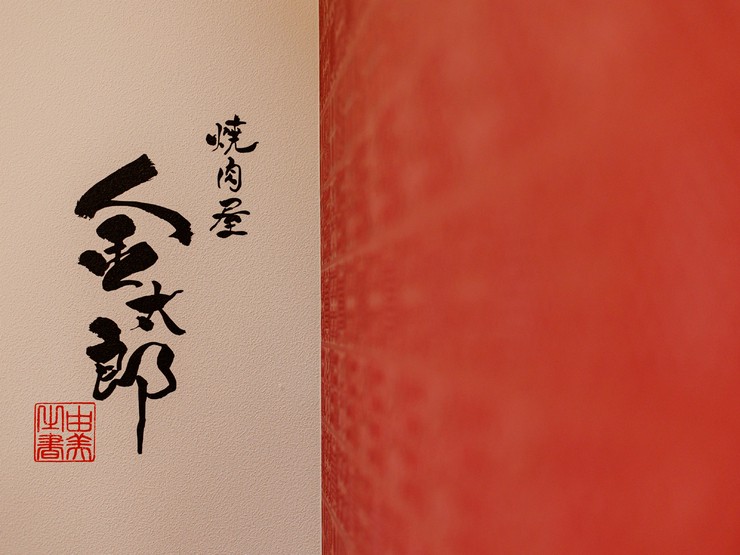 焼肉屋
金太郎
由美
之書